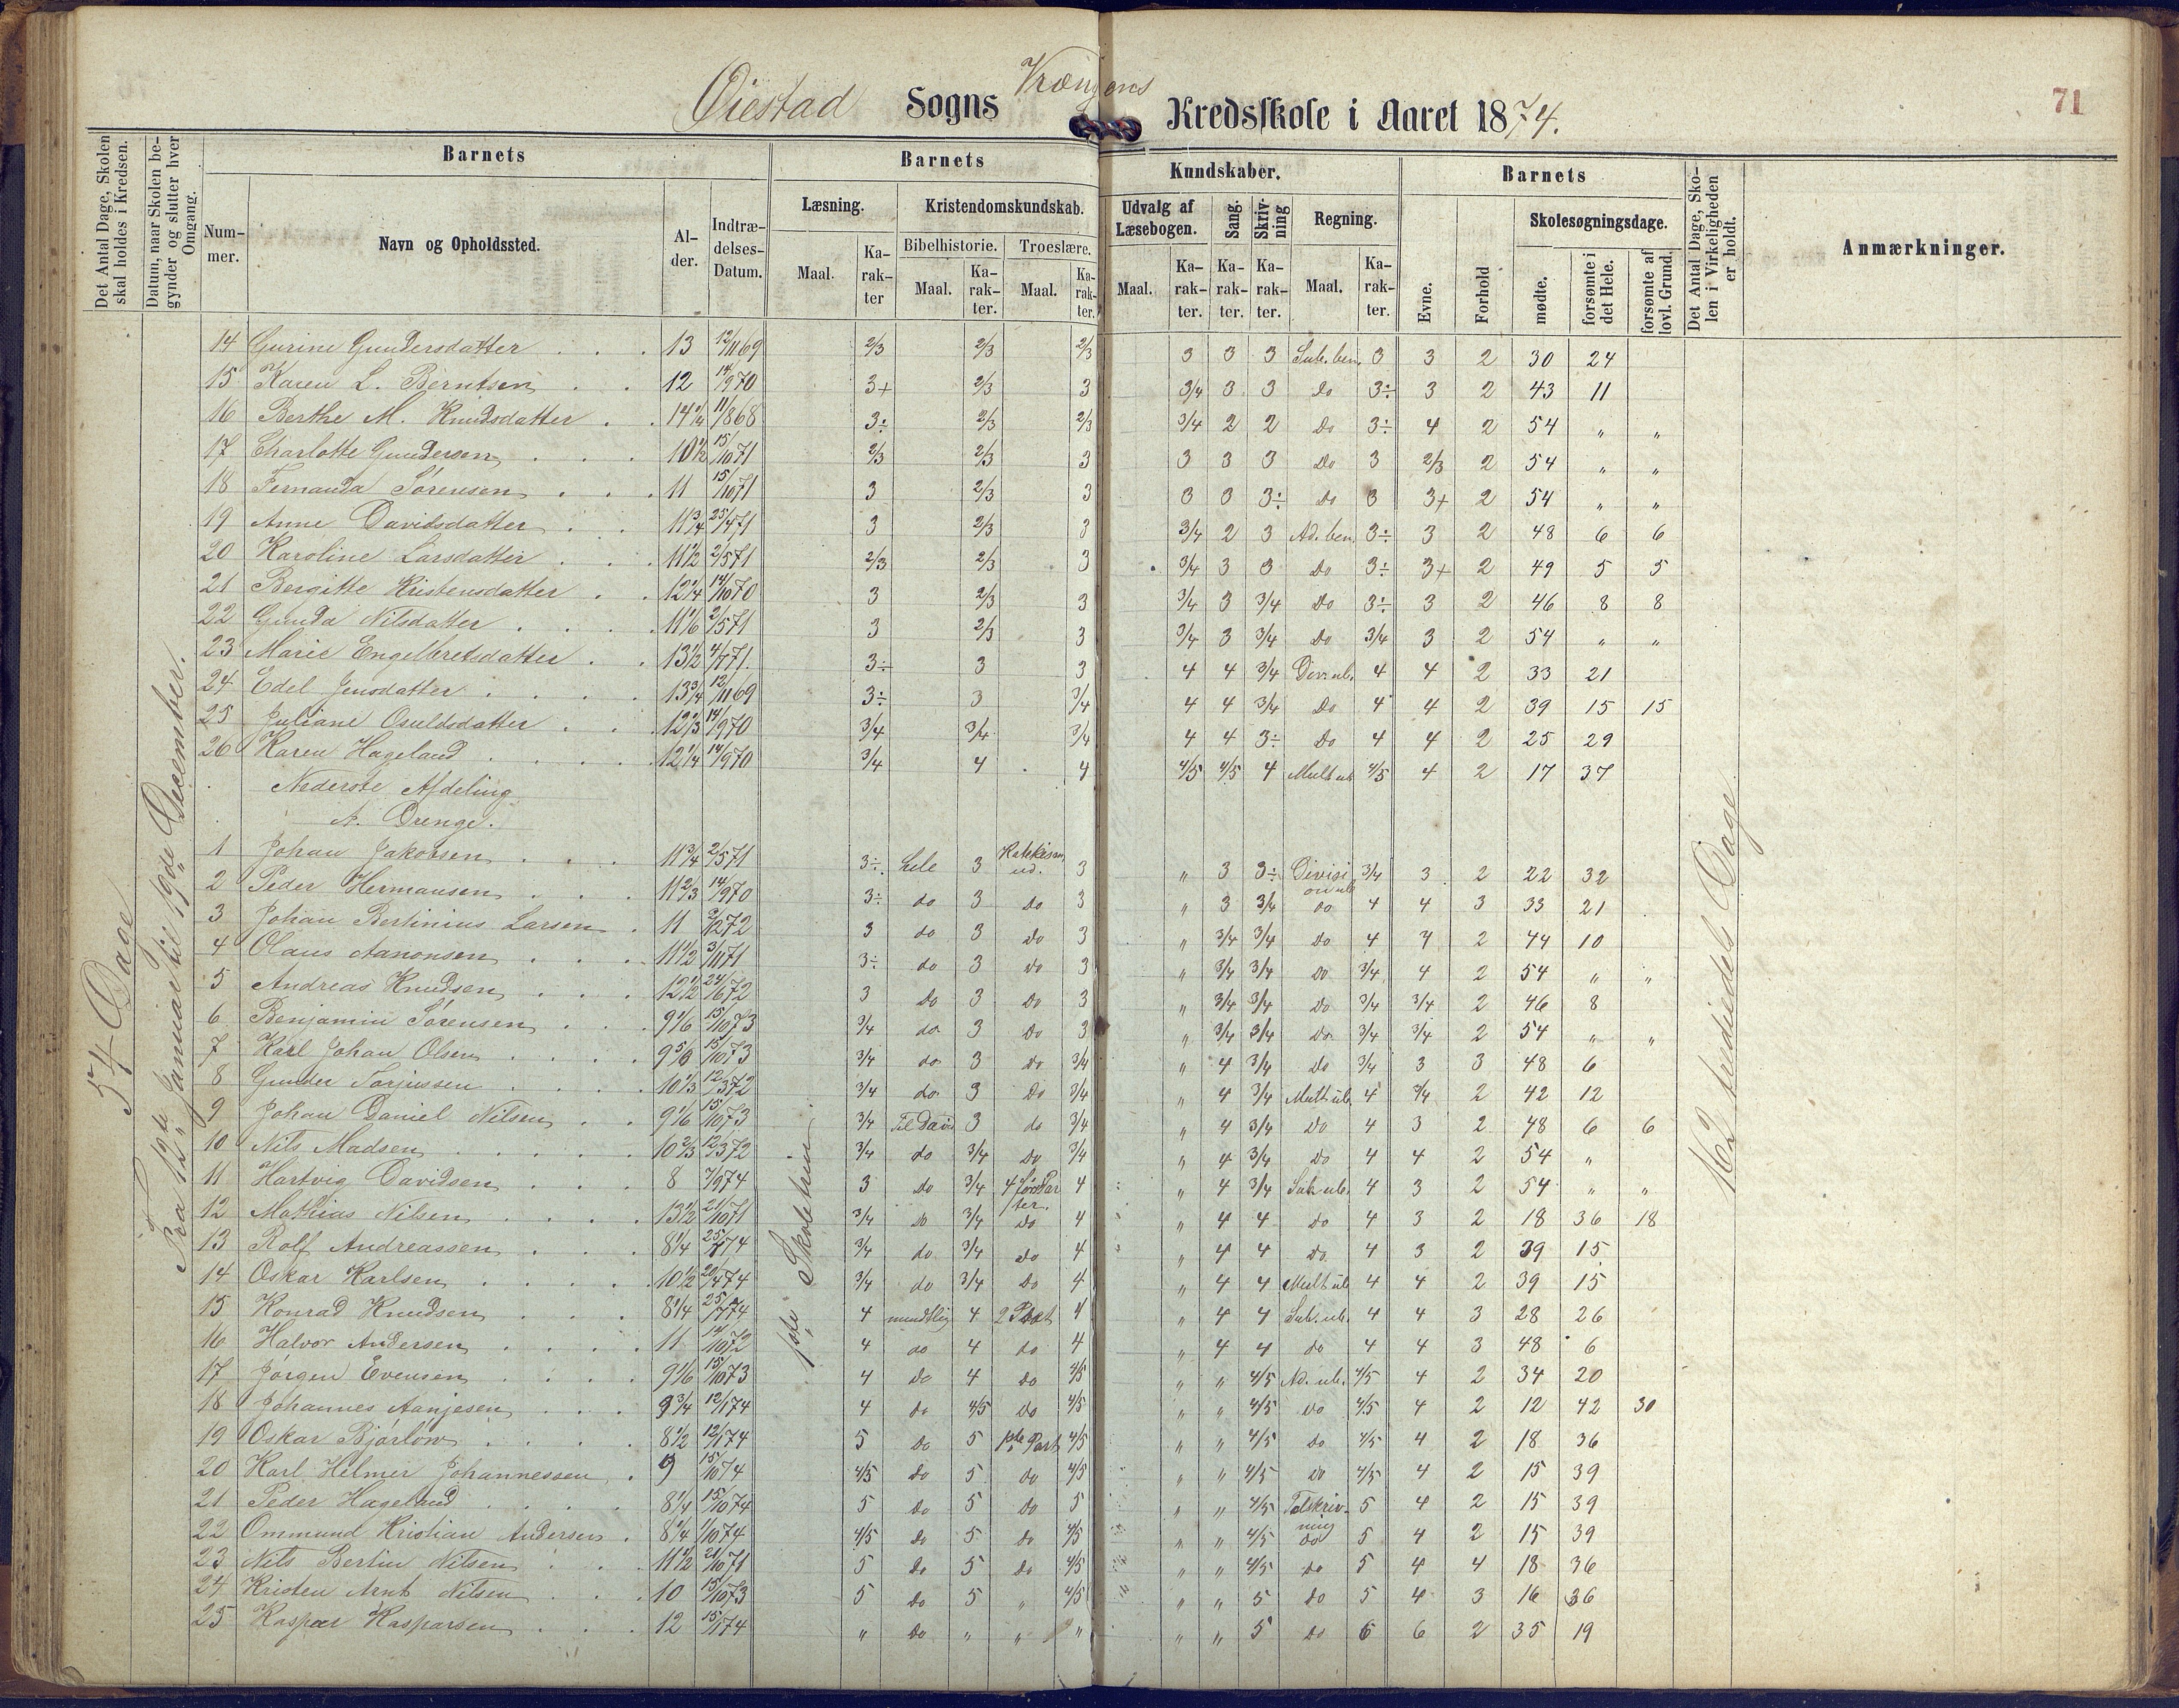 71
Øiestad Sogns Vrængens Kredsskole i Aaret 1874.
Det Antal Dage, Skolen skal holdes i Kredsen.
Datum, naar Skolen begynder og slutter hver Omgang.
Barnets
Barnets
Kundskaber.
Barnets
Det Antal Dage, Skolen i Virkeligheden er holdt.
Anmærkninger.
Nummer.
Navn og Opholdssted.
Alder.
Indtrædelses-Datum.
Læsning.
Kristendomskundskab.
Udvalg af Læsebogen.
Sang.
Skrivning
Regning.
Evne.
Forhold
Skolesøgningsdage.
Bibelhistorie.
Troeslære.
Maal.
Karakter
Maal.
Karakter.
Maal.
Karakter.
Maal.
Karakter.
Karakter.
Karakter.
Maal.
Karakter.
mødte.
forsømte i det Hele.
forsømte af lovl. Grund.
54 Dage
Fra 12te Januar til 19de December.
1ste Skoletrin
162 trediedels Dage
14 Gurine Gundersdatter 13 12/11 69 2/3 2/3 2/3 3 3 3 Sub. ben. 3 3 2 30 24
15 Karen L. Berntsen 12 14/9 70 3+ 2/3 3 3/4 3 3 Do 3÷ 3 2 43 11
16 Berthe M. Knudsdatter 14 1/4 11/8 68 3÷ 2/3 2/3 3/4 2 2 Do 3÷ 4 2 54 " "
17 Charlotte Gundersen 10 1/2 15/10 71 2/3 2/3 3 3 3 3 Do 3 2/3 2 54 " "
18 Fernanda Sørensen 11 15/10 71 3 2/3 3 3 3 3÷ Do 3 3+ 2 54 " "
19 Anne Davidsdatter 11 3/4 25/4 71 3 2/3 3 3/4 2 3 Ad. ben. 3÷ 3 2 48 6 6
20 Karoline Larsdatter 11 1/2 2/5 71 2/3 2/3 3 3/4 3 3 Do 3÷ 3+ 2 49 5 5
21 Bergitte Kristensdatter 12 1/4 14/10 70 3 2/3 3 3/4 3 3/4 Do 3÷ 3 2 46 8 8
22 Gunda Nilsdatter 11 1/6 2/5 71 3 2/3 3 3/4 3 3/4 Do 3/4 3 2 54 " "
23 Marie Engelbretsdatter 13 1/2 4/7 71. 3÷ 3 3 4 4 3/4 Div. ub. 4 4 2 33 21
24 Edel Jensdatter 13 3/4 12/11 69 3÷ 3 3/4 4 4 3/4 Do 4 4 2 39 15 15
25 Juliane Osuldsdatter 12 2/3 14/9 70 3/4 3/4 3/4 4 4 3÷ Do 4 4 2 25 29
26 Karen Hageland 12 1/4 14/9 70 3/4 4 4 4/5 4/5 4 Mult ub 4/5 4 2 17 37
Nederste Afdeling
A. Drenge.
1 Johan Jakobsen 11 3/4 2/5 71 3÷ hele 3 Katekism. ud. 3 " 3 3÷ Division ub 3/4 3 2 22 32
2 Peder Hermansen 11 2/3 14/9 70 3÷ do 3 Do 3 " 3 3/4 do 4 4 3 33 21
3 Johan Bertinius Larsen 11 2/2 72 3 do 3 Do 3 " 3/4 3/4 Do 4 4 2 44 10
4 Olaus Aanonsen 11 1/2 3/11 71 3÷ do 3 do 3 " 3/4 3/4 Do 3/4 4 2 54 " "
5 Andreas Knudsen 12 1/2 24/6 72 3 Do 3 Do 3 " 3/4 3/4 Do 3/4 3/4 2 46 8
6 Benjamin Sørensen 9 1/6 15/10 73 3/4 do 3 Do 3 " 3/4 3/4 Do 3/4 3/4 2 54 " "
7 Karl Johan Olsen 9 5/6 15/10 73 3/4 do 3 Do 3/4 " 4 3/4 Do 3/4 3 3 48 6
8 Gunder Torjussen 10 1/3 12/3 72 3/4 do 3 Do 3/4 " 4 3/4 Mult ub. 4 3/4 2 42 12
9 Johan Daniel Nilsen 9 1/6 15/10 73 3/4 Til David 3 do 3/4 " 4 3/4 Do 4 3 2 48 6 6
10 Nils Madsen 10 2/3 12/3 72 3/4 do 3/4 Do 3/4 " 4 3/4 Do 4 4 2 54 "
11 Hartvig Davidsen 8 7/9 74 3 Do 3/4 4 første Parter. 4 " 4 3/4 Sub ub. 4 3 2 54 " "
12 Mathias Nilsen 13 1/2 21/10 71 3/4 Do 3/4 Do 4 " 4 4 do 4 3 2 18 36 18
13 Rolf Andreassen 8 1/4 25/7 74 3/4 do 3/4 Do 4 " 4 4 do 4 3 2 39 15
14 Oskar Karlsen 10 1/2 20/4 74 3/4 do 3/4 Do 4 " 4 4 Mult ub 4 4 2 39 15
15 Konrad Knudsen 8 1/4 25/7 74 4 mundtlig 4 2 Part 4 " 4 4 Sub. ub. 4 4 3 28 26
16 Halvor Andersen 11 14/10 72 4 do 4 do 4 " 4 4 do 4 4 3 48 6
17 Jørgen Evensen 9 1/6 15/10 73 4 Do 4 do 4/5 " " 4/5 Ad. ub. 4/5 4 2 34 20
18 Johannes Aanjesen 9 3/4 12/1 74 4 do 4/5 Do 4/5 " " 4/5 do 4/5 4 2 12 42 30
19 Oskar Bjørløw 8 1/2 12/1 74 5 Do 5 1ste Part 4/5 " " 4/5 do 4/5 4 2 18 36
20 Karl Helmer Johannessen 9 15/10 74 4/5 Do 5 do 4/5 " " 4/5 do 4/5 4 2 15 39
21 Peder Hageland 8 1/4 15/10 74 5 Do 5 Do 5 " " 4/5 Talskrivning 5 4 2 15 39
22 Ommund Kristian Andersen 8 1/4 1/10 74 4/5 Do 5 do 4/5 " " 4/5 do 5 4 2 15 39
23 Nils Bertin Nilsen 11 1/2 21/10 71 5 Do 5 Do 4/5 " " 4/5 do 5 4 4 18 36
24 Kristen Arnt Nilsen 10 15/10 73 5 do 5 " 4/5 " " 5 do 5 4 3 16 36
25 Kaspar Kasparsen 12 15/1 74 " Do " " " " " 5 do 6 6 2 35 19